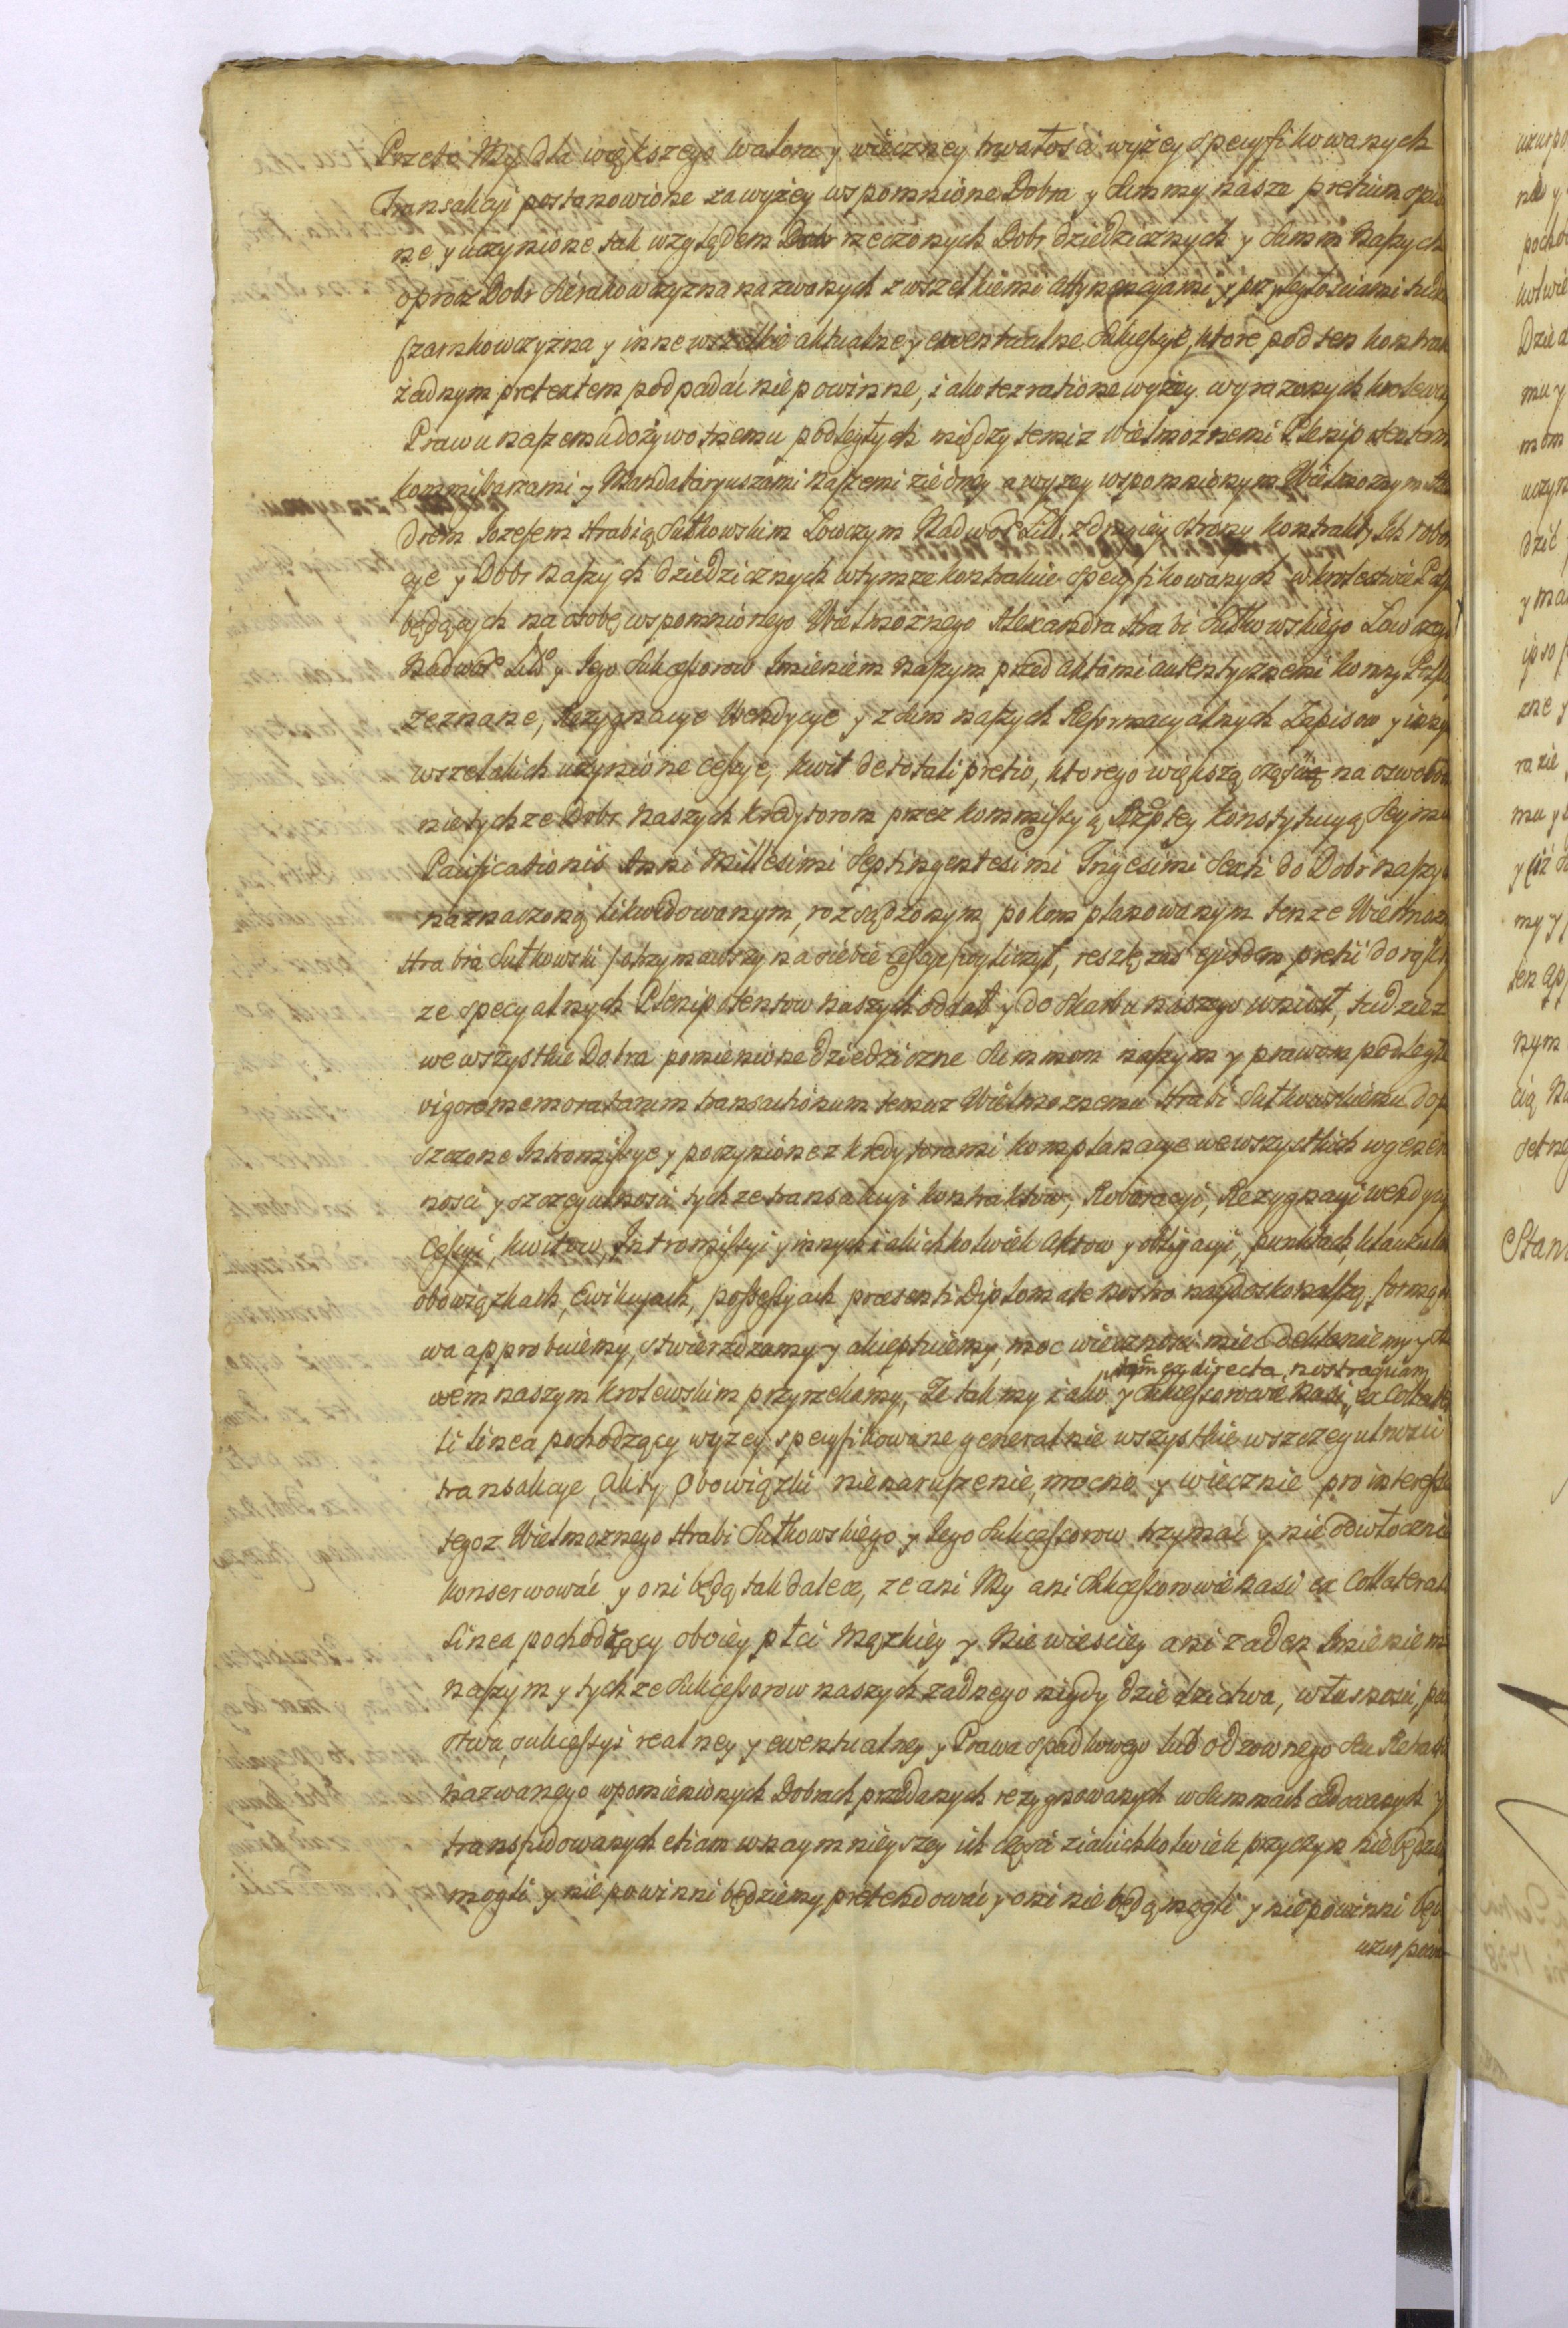 Przeto My dla większego waloru y wieczney trwałości wyżey specyfikowanych
Transakcji postanowione za wyżey wspomnione Dobra y Summy nasze pretium spis
ne y uczynione tak względem rzeczonych Dobr dziedzicznych y Summ naszych
oprocz Dobr Sierakowczyzna nazwanych z wszelkiemi attynencyami y przyległościami tudz
szamkowczyzna y inne wszelkie aktualne y ewentualne Sukcessye, ktore pod ten kontrak
żadnym pretextem podpadać nie powinne, iako tez ratione wyżey wyrazonych krolews
Prawu naszemu dożywotnemu podległych między temiz Wielmoznemi Plenipotentam
kommissarzami y Mandataryuszami naszemi ziedney a wyzey wspomnionym Wielmoznym Ale
drem Jozefem Hrabią Sułkowskim Łowczym Nadwor Litt. z drugiey strony kontrakty Ich robor
cye y Dobr naszych dziedzicznych w tymze kontrakcie specyfikowanych w krolestwie Pol
będących na osobę wspomnionego Wielmoznego Alexandra Hrabi Sułkowskiego Łowczego
Nadwor Litt y Jego Sukcessorow Imieniem naszym przed aktami autentycznemi koronny Polski
zeznane, Rezygnacye Wendycye y z Sum naszych Reformacyalnych Zapisow y innych
wszelakich uczynione Cessye, kwit de totali pretio, ktorego większą częścią na oswobo
nie tychze Dobr naszych kredytorom przez kommissyą Rzptey konstytucyą Seymu
Pacificationis Anni Millesimi Septingentesimi Trigesimi Sexti do Dobr naszych
naznaczoną likwidowanym, rozsądzonym, pokomplanowanym tenze Wielmozn
Hrabia Sułkowski otrzymawszy na siebie Cessye wyliczył, resztę zaś ejusdem pretii do rąk
ze specyalnych Plenipotentow naszych oddał y do skarbu naszego wniosł, tudziez
we wszystkie Dobra pomienione dziedziczne Summom naszym y prawom podległe
vigore memoratarum transactionum temuz Wielmoznemu Hrabi Sułkowskiemu dop
szczone Intromissye y poczynione z kredytorami komplanacye we wszystkich w gener
ności y szczegulności tychze transakcyi kontraktow, Roboracyi, Rezygnacyi wendycy
Cessyi, kwitow, Intromissyi y innych iakichkolwiek Aktow y obligacyi, punktach, klauzula
obowiązkach, Ewikcyach, possessyach praesenti Diplomate nostro naydoskonalszą formą
wa approbuiemy, stwierdzamy y akceptuiemy, moc wieczności mieć deklaruiemy y sło
tam ex directa, nostra quam
wem naszym krolewskim przyrzekamy, Ze tak my iako y Sukcessorowie nasi, ex Collate
li linea pochodzący wyzey specyfikowane generalnie wszystkie w szczegulności
transakcye, akty, Obowiązki nienaruszenie, mocno y wiecznie pro interesse
tegoz Wielmoznego Hrabi Sułkowskiego y Jego Sukcessorow trzymać y nieodwłocznie
konserwować y oni będą tak dalece, ze ani My ani Sukcessorowie nasi ex Collateral
Linea pochodzący oboiey płci męzkiey y Niewieściey ani zaden Imieniem
naszym y tychze Sukcessorow naszych zadnego nigdy dziedzictwa, własności, pań
stwa, sukcessyi realney y ewentualney y Prawa spadkowego lub odzownego seu Retract
nazwanego w pomienionych Dobrach przedanych rezygnowanych w Summach cedowanych y
transfudowanych etiam w naymnieyszey ich części z iakichkolwiek przyczyn nie będzie
mogli y nie powinni będziemy pretendować y oni nie będą mogli y nie powinni będą
uzurpowa